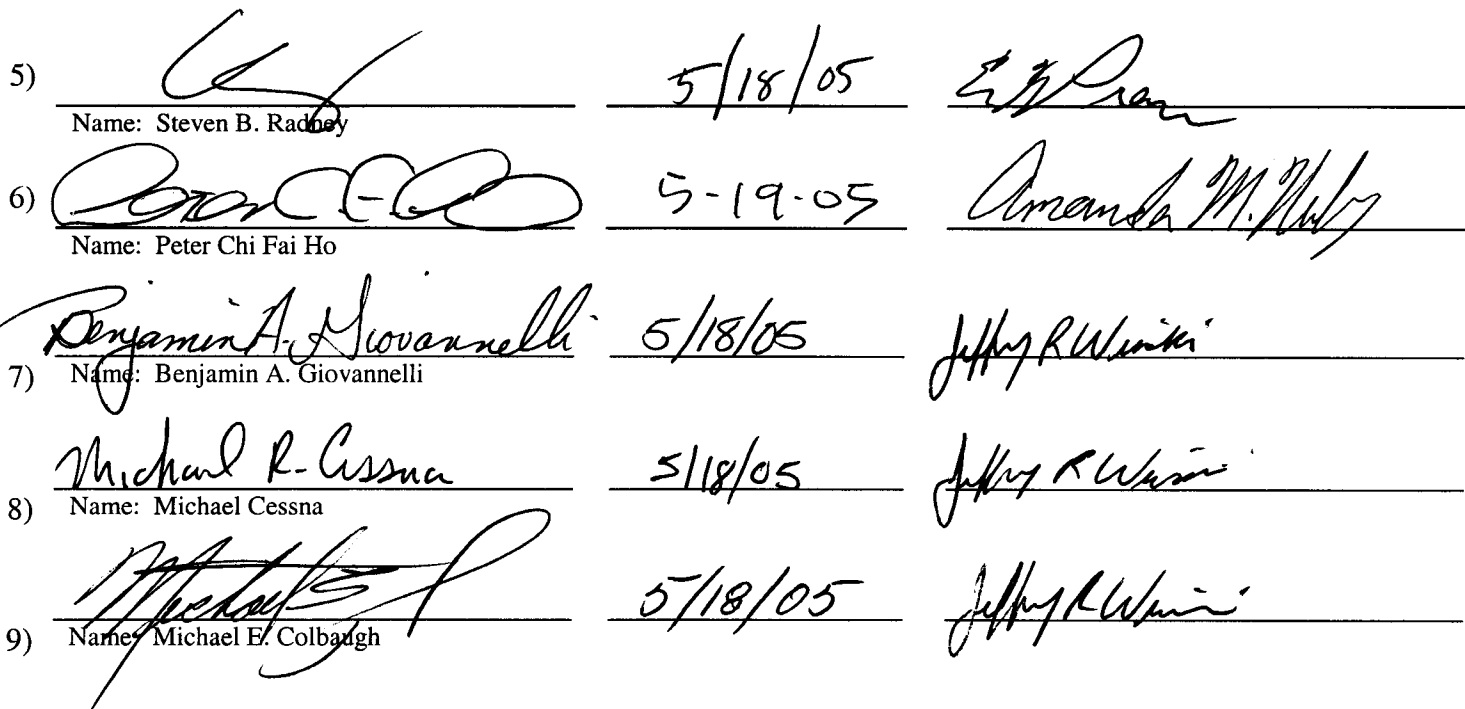 5) 5/18/05
Name: Steven B. Radney
6) 5-19-05 Amanda M.
Name: Peter Chi Fai Ho
Benjamin A. Giovannelli 5/18/05 Jeffry R
7) Name: Benjamin A. Giovannelli
Michael R. Cessna 5/18/05 Jeffry R
8) Name: Michael Cessna
Michael 5/18/05 Jeffry R
9) Name: Michael E. Colbaugh